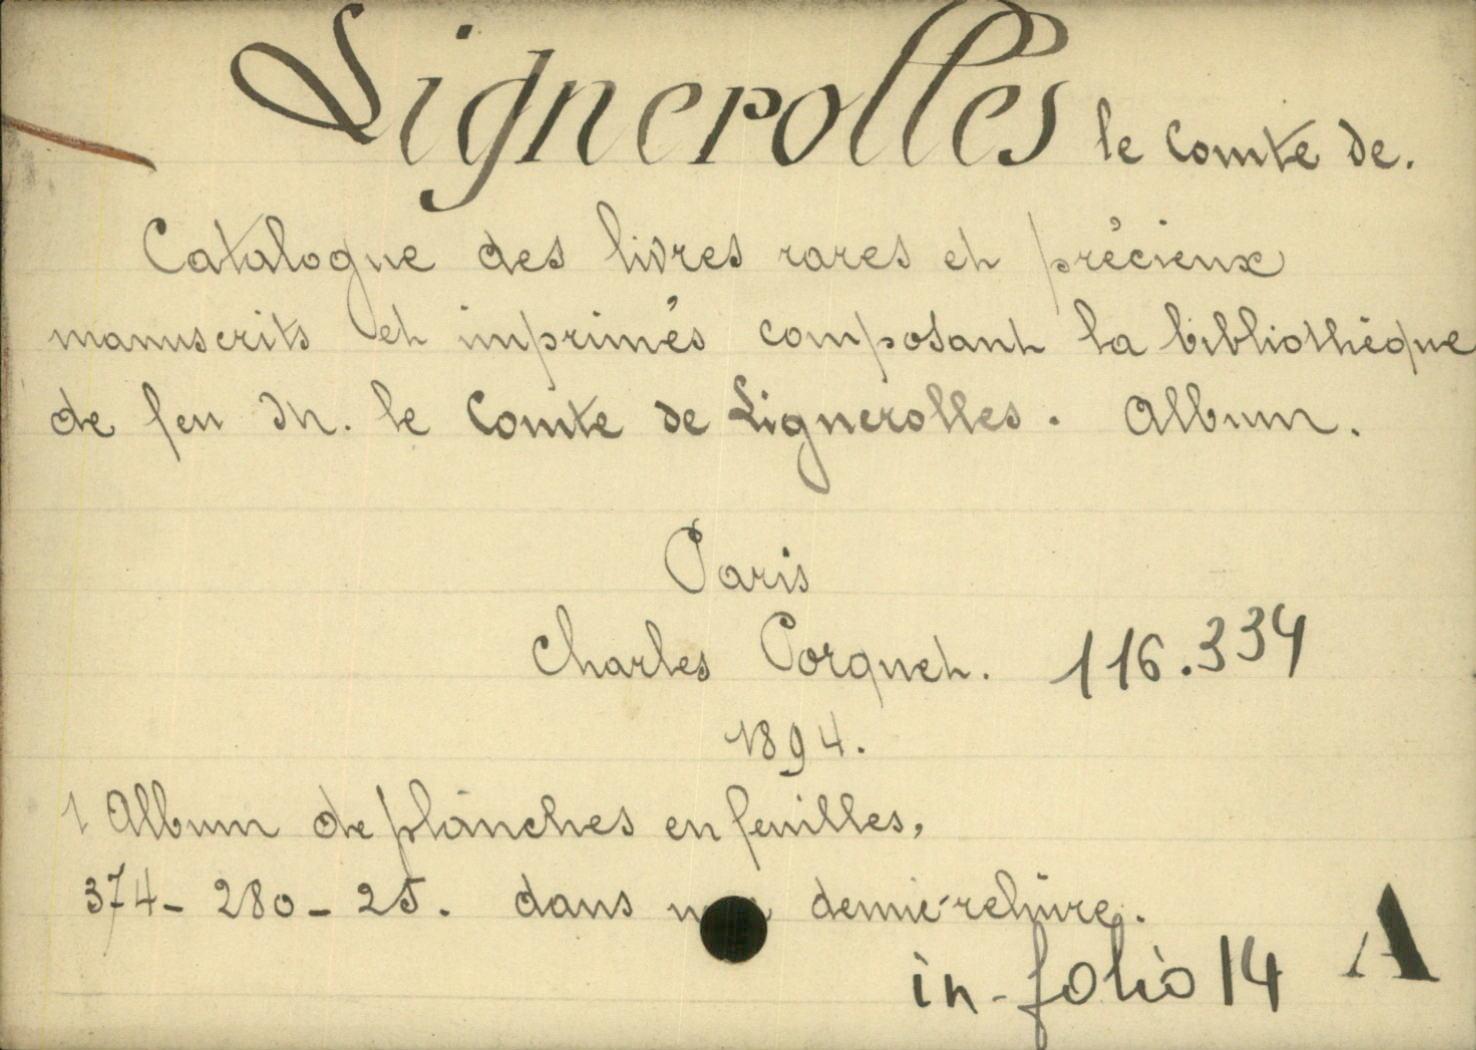 Lignerolles le Comte de.
Catalogue des livres rares et précieux
manuscrits et imprimés composant la bibliothèque
de feu M. le Comte de Lignerolles. Album.
Paris
Charles Porquet. 116.334
1894.
1 Album de planches en feuilles,
374-280-25. dans demie-reliûre.
in-folio 14 A